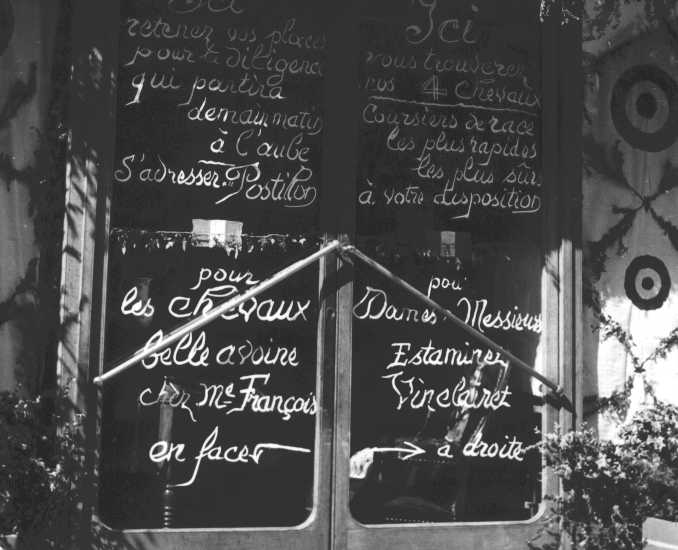 Ici
retenez vos places
pour la diligence
qui partira
demain matin
à l'aube
S'adresser: Postillon
pour
les chevaux
belle avoine
chez Me François
en face
Ici
vous trouverez
nos 4 Chevaux
Coursiers de race
les plus rapides
les plus sûrs
à votre disposition
pour
Dames Messieurs
Estaminet
Vin clairet
à droite